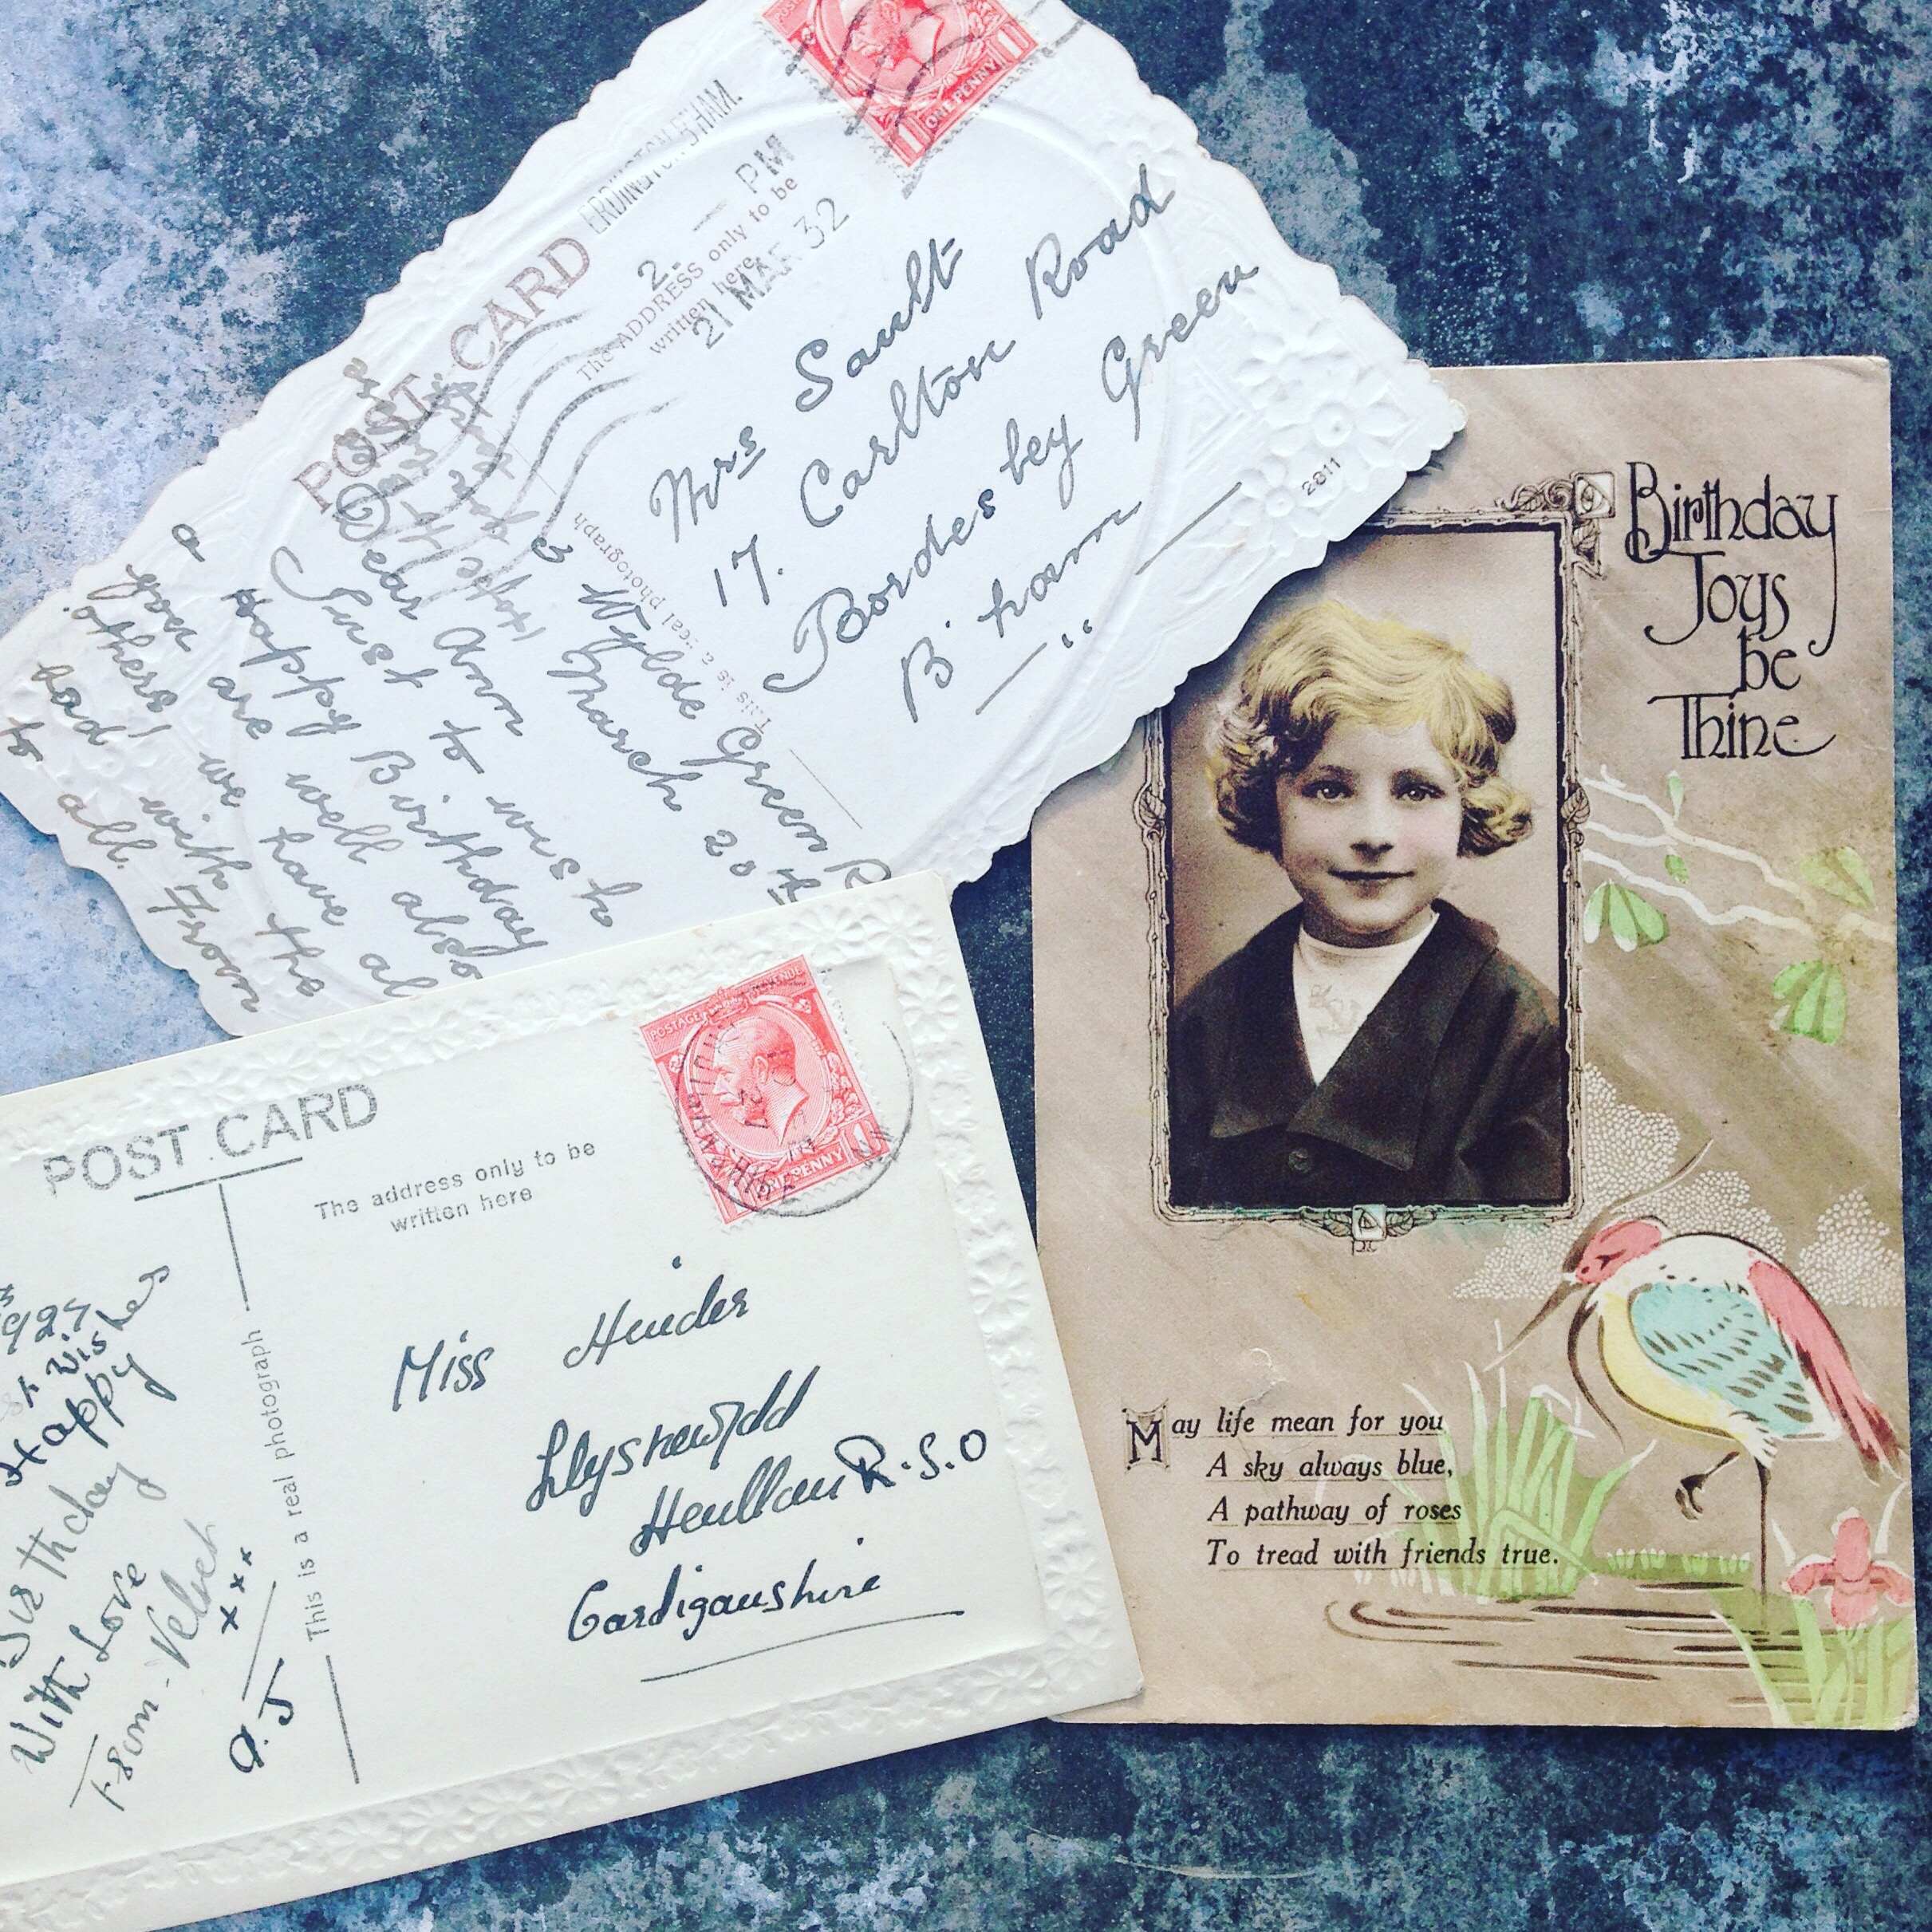 POSTAGE
1 ONE PENNY 1
ERDINGTON B'HAM.
2. — PM
21 MAR 32
POST CARD
The ADDRESS only to be
written here
This is a real photograph
Mrs Sault
17. Carlton Road
Bordesley Green
B'ham
2811
3 Wylde Green R
March 20th
Dear Ann
Just to wish
a Happy Birthday
you are well also
others, we have al
bad with the
to all. From
Birthday
Joys
be
Thine
May life mean for you
A sky always blue,
A pathway of roses
To tread with friends true.
POST CARD
The address only to be
written here
POSTAGE REVENUE
ONE PENNY
This is a real photograph
Miss Hinder
Llysnewydd
Henllan R.S.O
Cardiganshire
1927
Wishes
Happy
Birthday
With Love
From - Velvet
x x x
A.J